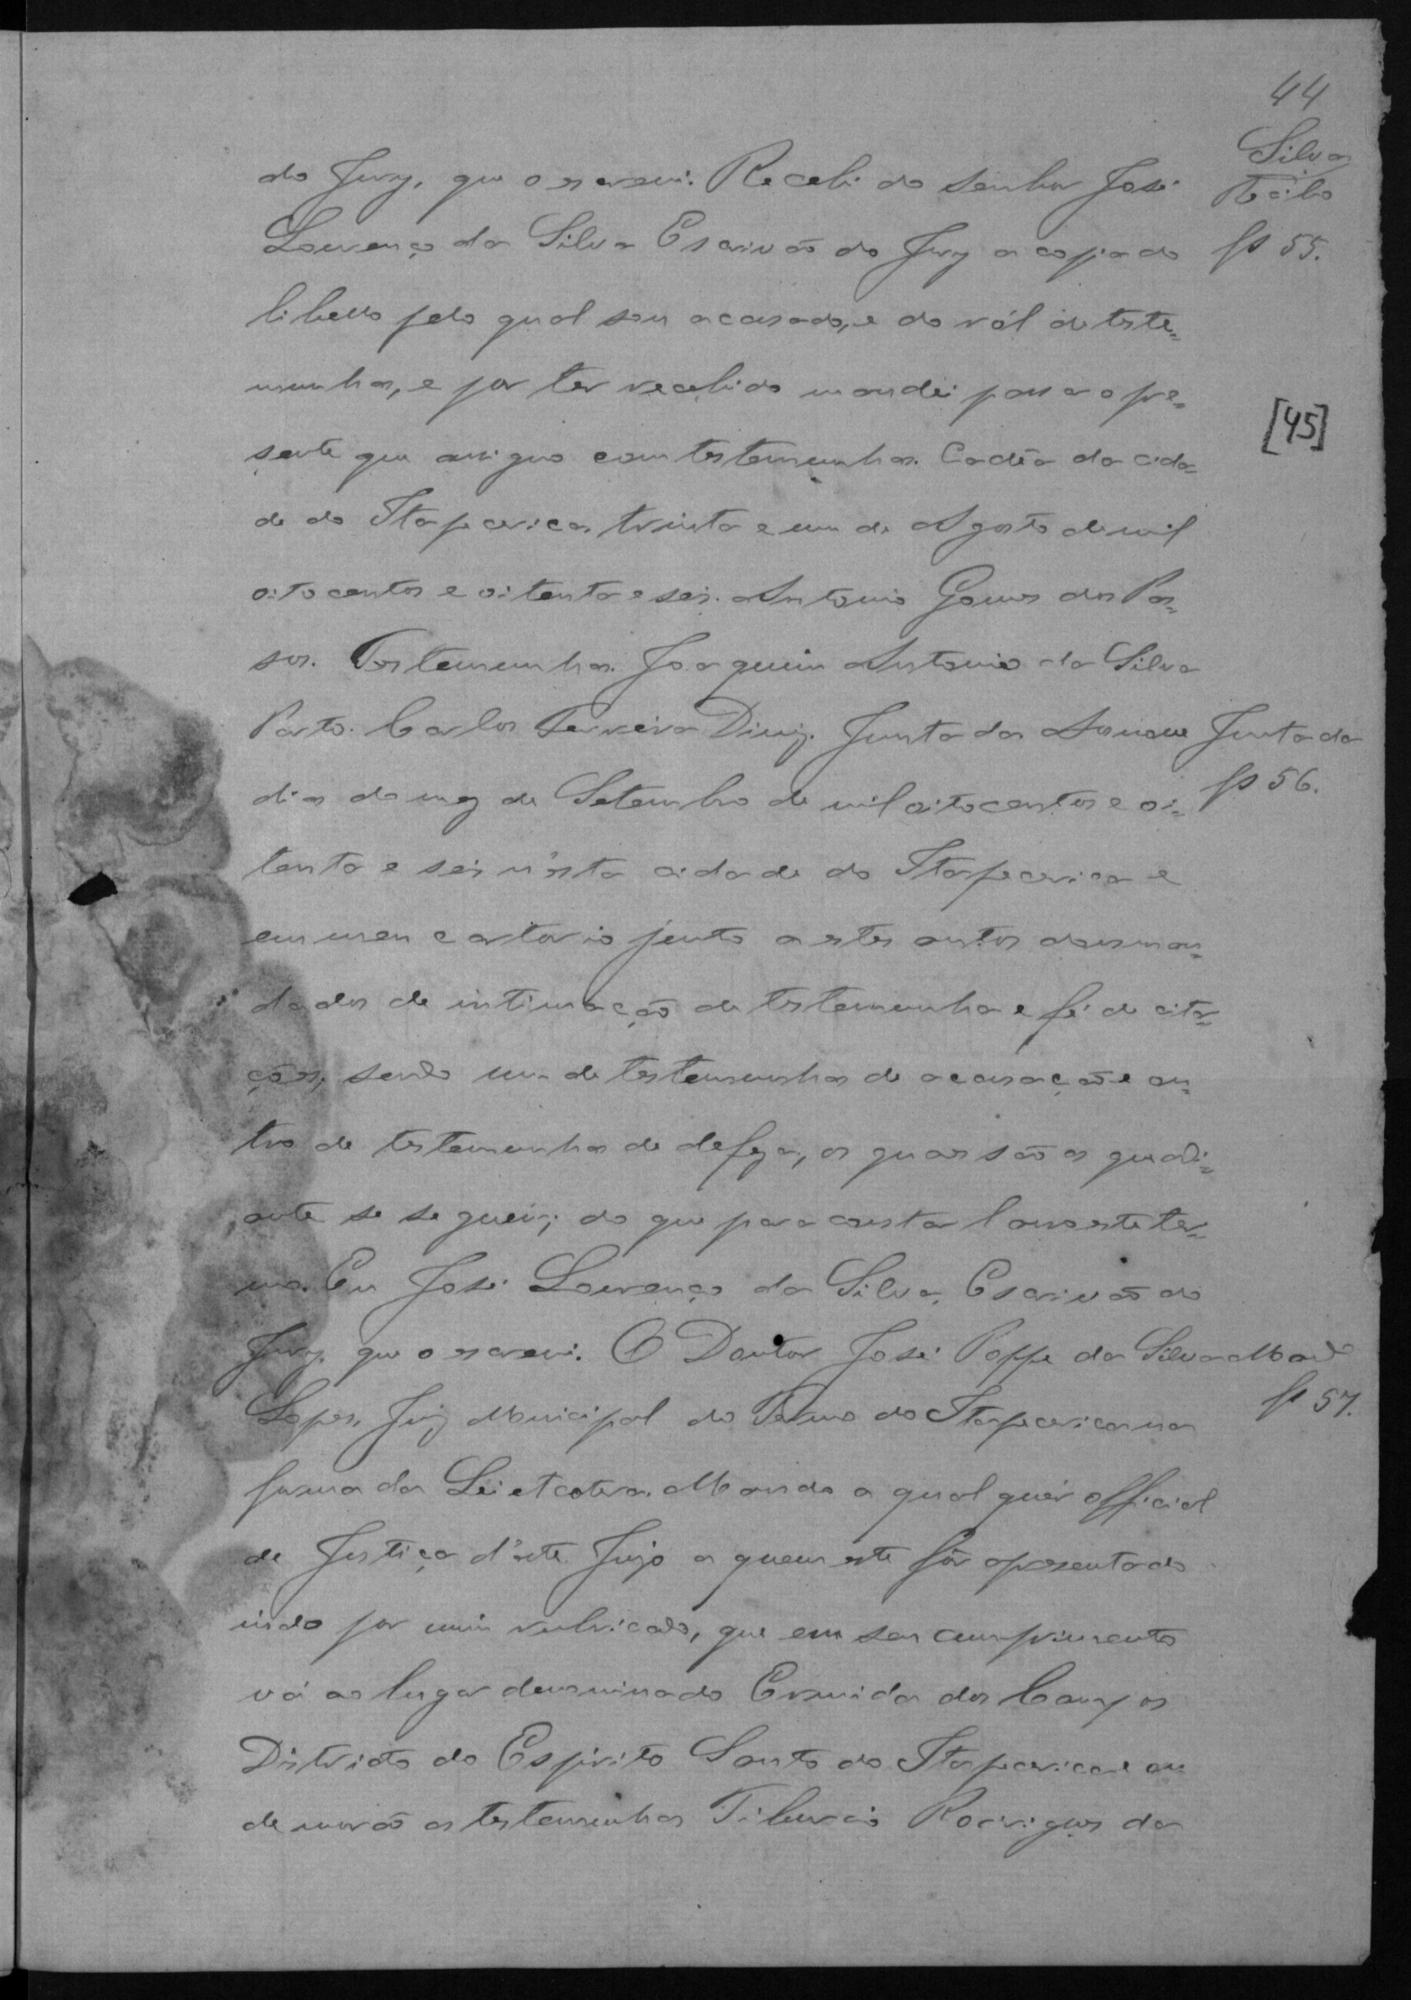 44
Silva
do Jury, que o escrevi. Recebi do Senhor José
Recibo
Lourenço da Silva Escrivão do Jury a copia do
fs 55.
libello pelo qual sou accusado, e do ról de teste=
munhas, e por ter recebido mandei passar o pre=
[45]
sente que assigno com testemunhas. Cadêa da cida=
de do Itapecerica, trinta e um de Agosto de mil
oitocentos e oitenta e seis. Antonio Gomes dos Pas=
sos. Testemunhas. Joaquim Antonio da Silva
Porto. Carlos Ferreira Diniz. Juntada Aos nove
Juntada
dias do mez de Setembro de mil oitocentos e oi=
fs 56.
tenta e seis n'esta cidade do Itapecerica e
em meu cartorio junto a estes autos dous man=
dados de intimação de testemunha e fé de cita=
ções, sendo um de testemunhas de accusação e ou=
tro de testemunhas de defeza, os quaes são os que adi=
ante se seguem; do que para constar lavro este ter=
mo. Eu José Lourenço da Silva, Escrivão do
Jury, que o escrevi. O Doutor José Poppe da Silva
Mando
Lopes, Juiz Municipal do Termo do Itapecerica na
fs 57.
forma da Lei etcetera. Mando a qualquer official
de Justiça d'este Juizo a quem este fôr apresentado
indo por mim rubricado, que em seu cumprimento
vá ao lugar denominado Ermida dos Campos
Districto do Espirito Santo do Itapecerica e on
de morão as testemunhas Tiburcio Rodrigues da